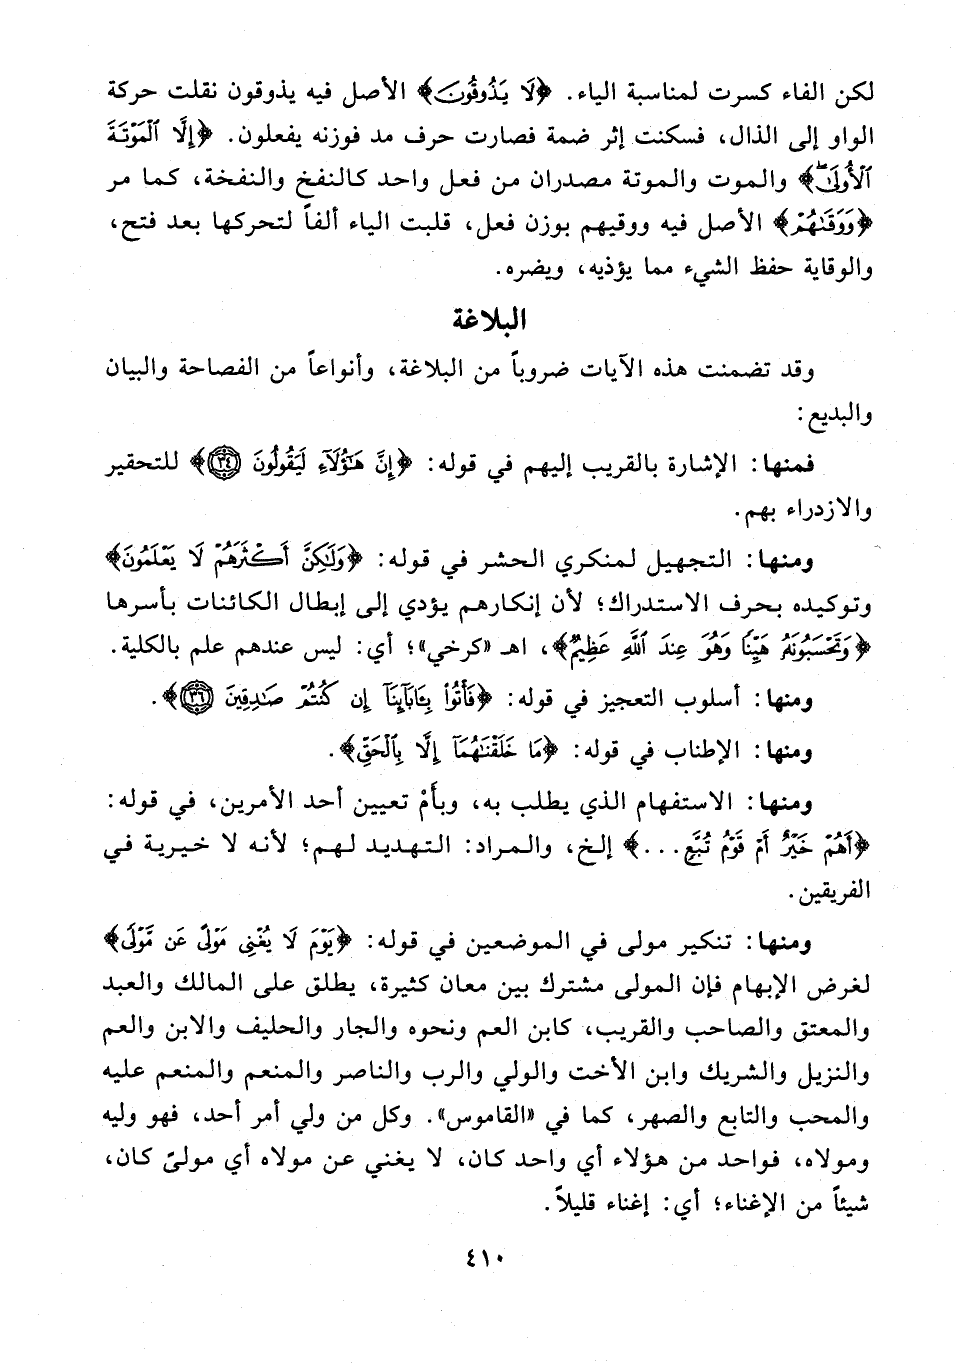 لكن الفاء كسرت لمناسبة الياء. ﴿لَا يَذُوقُونَ﴾ الأصل فيه يذوقون نقلت حركة
الواو إلى الذال، فسكنت إثر ضمة فصارت حرف مد فوزنه يفعلون. ﴿إِلَّا ٱلْمَوْتَةَ
ٱلْأُولَىٰ﴾ والموت والموتة مصدران من فعل واحد كالنفخ والنفخة، كما مر
﴿وَوَقَىٰهُمْ﴾ الأصل فيه ووقيهم بوزن فعل، قلبت الياء ألفاً لتحركها بعد فتح،
والوقاية حفظ الشيء مما يؤذيه، ويضره.
البلاغة
وقد تضمنت هذه الآيات ضروباً من البلاغة، وأنواعاً من الفصاحة والبيان
والبديع:
فمنها: الإشارة بالقريب إليهم في قوله: ﴿إِنَّ هَٰٓؤُلَآءِ لَيَقُولُونَ ٣٤﴾ للتحقير
والازدراء بهم.
ومنها: التجهيل لمنكري الحشر في قوله: ﴿وَلَٰكِنَّ أَكْثَرَهُمْ لَا يَعْلَمُونَ﴾
وتوكيده بحرف الاستدراك؛ لأن إنكارهم يؤدي إلى إبطال الكائنات بأسرها
﴿وَتَحْسَبُونَهُۥ هَيِّنًا وَهُوَ عِندَ ٱللَّهِ عَظِيمٌ﴾، اهـ «كرخي»؛ أي: ليس عندهم علم بالكلية.
ومنها: أسلوب التعجيز في قوله: ﴿فَأْتُوا۟ بِـَٔابَآئِنَآ إِن كُنتُمْ صَٰدِقِينَ ٣٦﴾.
ومنها: الإطناب في قوله: ﴿مَا خَلَقْنَٰهُمَآ إِلَّا بِٱلْحَقِّ﴾.
ومنها: الاستفهام الذي يطلب به، وبأَمْ تعيين أحد الأمرين، في قوله:
﴿أَهُمْ خَيْرٌ أَمْ قَوْمُ تُبَّعٍ...﴾ إلخ، والمراد: التهديد لهم؛ لأنه لا خيرية في
الفريقين.
ومنها: تنكير مولى في الموضعين في قوله: ﴿يَوْمَ لَا يُغْنِى مَوْلًى عَن مَّوْلًى﴾
لغرض الإبهام فإن المولى مشترك بين معان كثيرة، يطلق على المالك والعبد
والمعتق والصاحب والقريب، كابن العم ونحوه والجار والحليف والابن والعم
والنزيل والشريك وابن الأخت والولي والرب والناصر والمنعم والمنعم عليه
والمحب والتابع والصهر، كما في «القاموس». وكل من ولي أمر أحد، فهو وليه
ومولاه، فواحد من هؤلاء أي واحد كان، لا يغني عن مولاه أي مولىً كان،
شيئاً من الإغناء؛ أي: إغناء قليلاً.
٤١٠